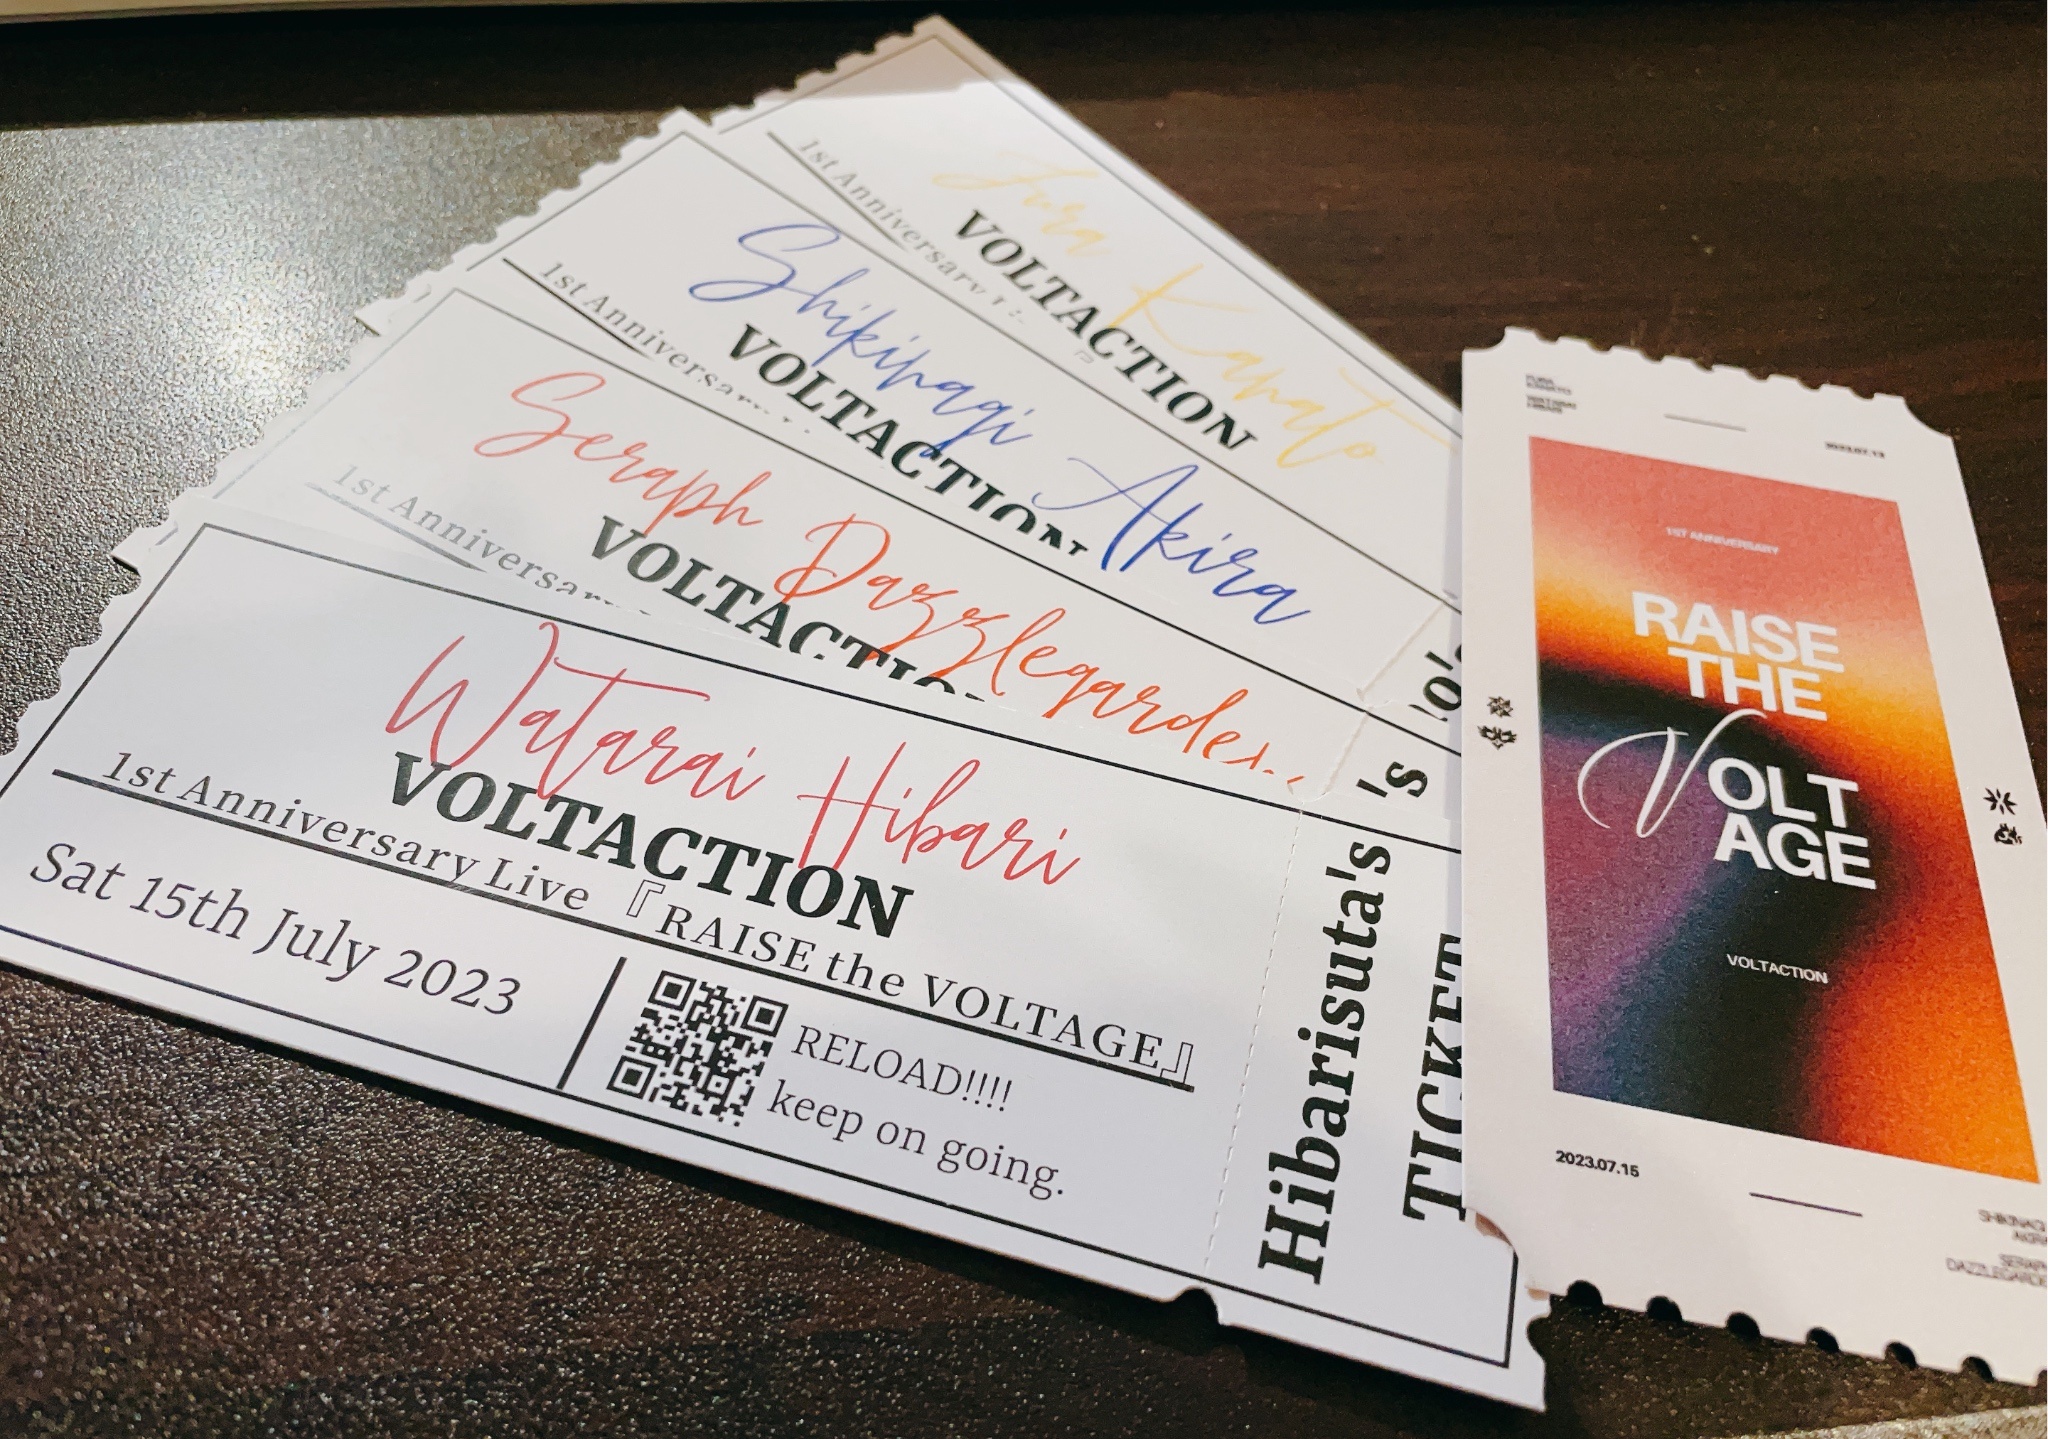 Fura Kanato
VOLTACTION
1st Anniversary
Shikinagi Akira
VOLTACTION
1st Anniversary
Seraph Dazzlegarden
VOLTACTION
1st Anniversary
's
Watarai Hibari
VOLTACTION
1st Anniversary Live 『RAISE the VOLTAGE』
Sat 15th July 2023
RELOAD!!!!
keep on going.
Hibarisuta's
TICKET
1ST ANNIVERSARY
RAISE
THE
VOLT
AGE
VOLTACTION
2023.07.15
SERAPH
DAZZLEGARDE